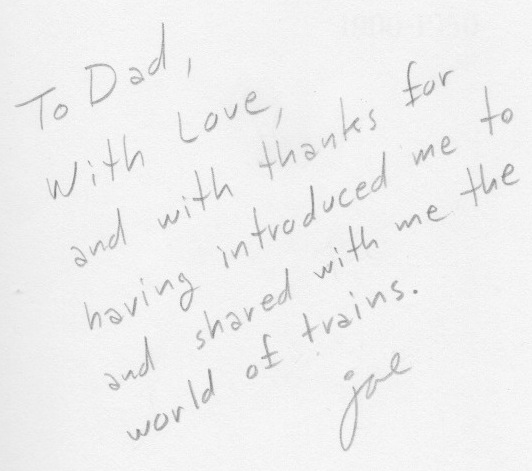 To Dad,
With Love,
and with thanks for
having introduced me to
and shared with me the
world of trains.
joe